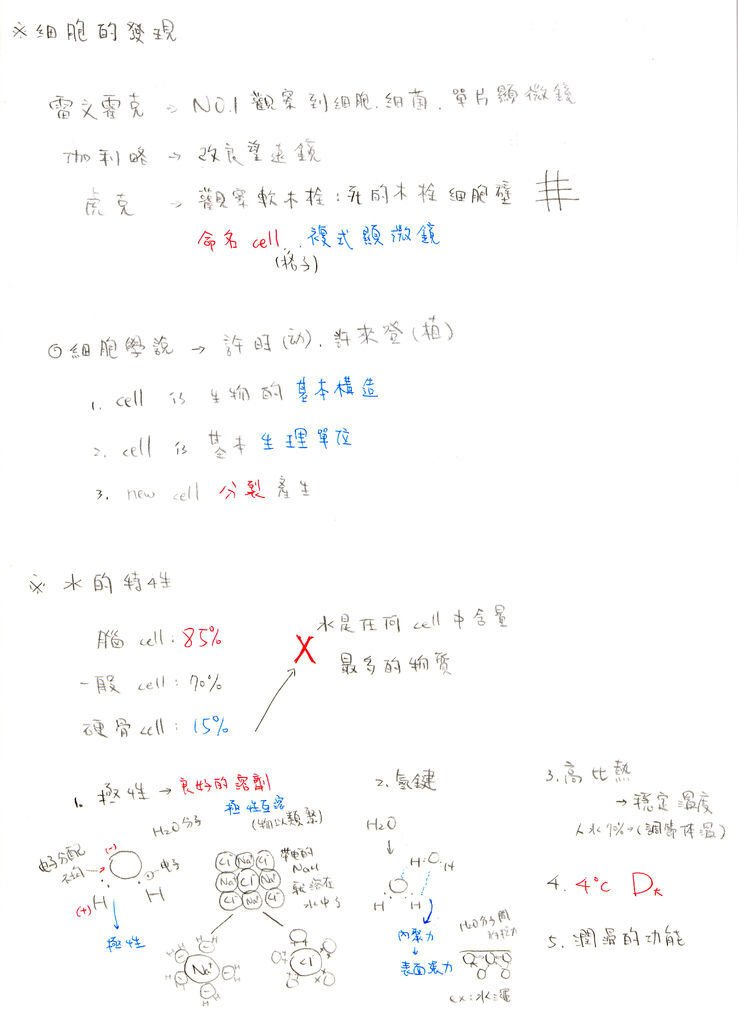 ※細胞的發現
雷文霍克 → NO.1 觀察到細胞.細菌. 單片顯微鏡
伽利略 → 改良望遠鏡
虎克 → 觀察軟木栓:死的木栓細胞壁
命名 cell. 複式顯微鏡
(格子)
◎細胞學說 → 許旺(动). 許來登(植)
1. cell is 生物的基本構造
2. cell is 基本生理單位
3. new cell 分裂產生
※ 水的特性
腦 cell: 85%
一般 cell: 70%
硬骨 cell: 15%
X 水是在何 cell 中含量
最多的物質
1. 極性 → 良好的溶劑
極性互溶
(物以類聚)
H2O分子
電子分配
不均
(-)
電子
H H
(+)
極性
Cl- Na+ Cl-
Na+ Cl- Na+
Cl- Na+ Cl-
帶電的
NaCl
就溶在
水中了
Na+
Cl-
2. 氫鍵
H2O
H O H
O
H H
內聚力
表面張力
H2O分子間
ex:水黽
3. 高比熱
→ 穩定溫度
人水70%→(調節体溫)
4. 4°C D大
5. 潤滑的功能